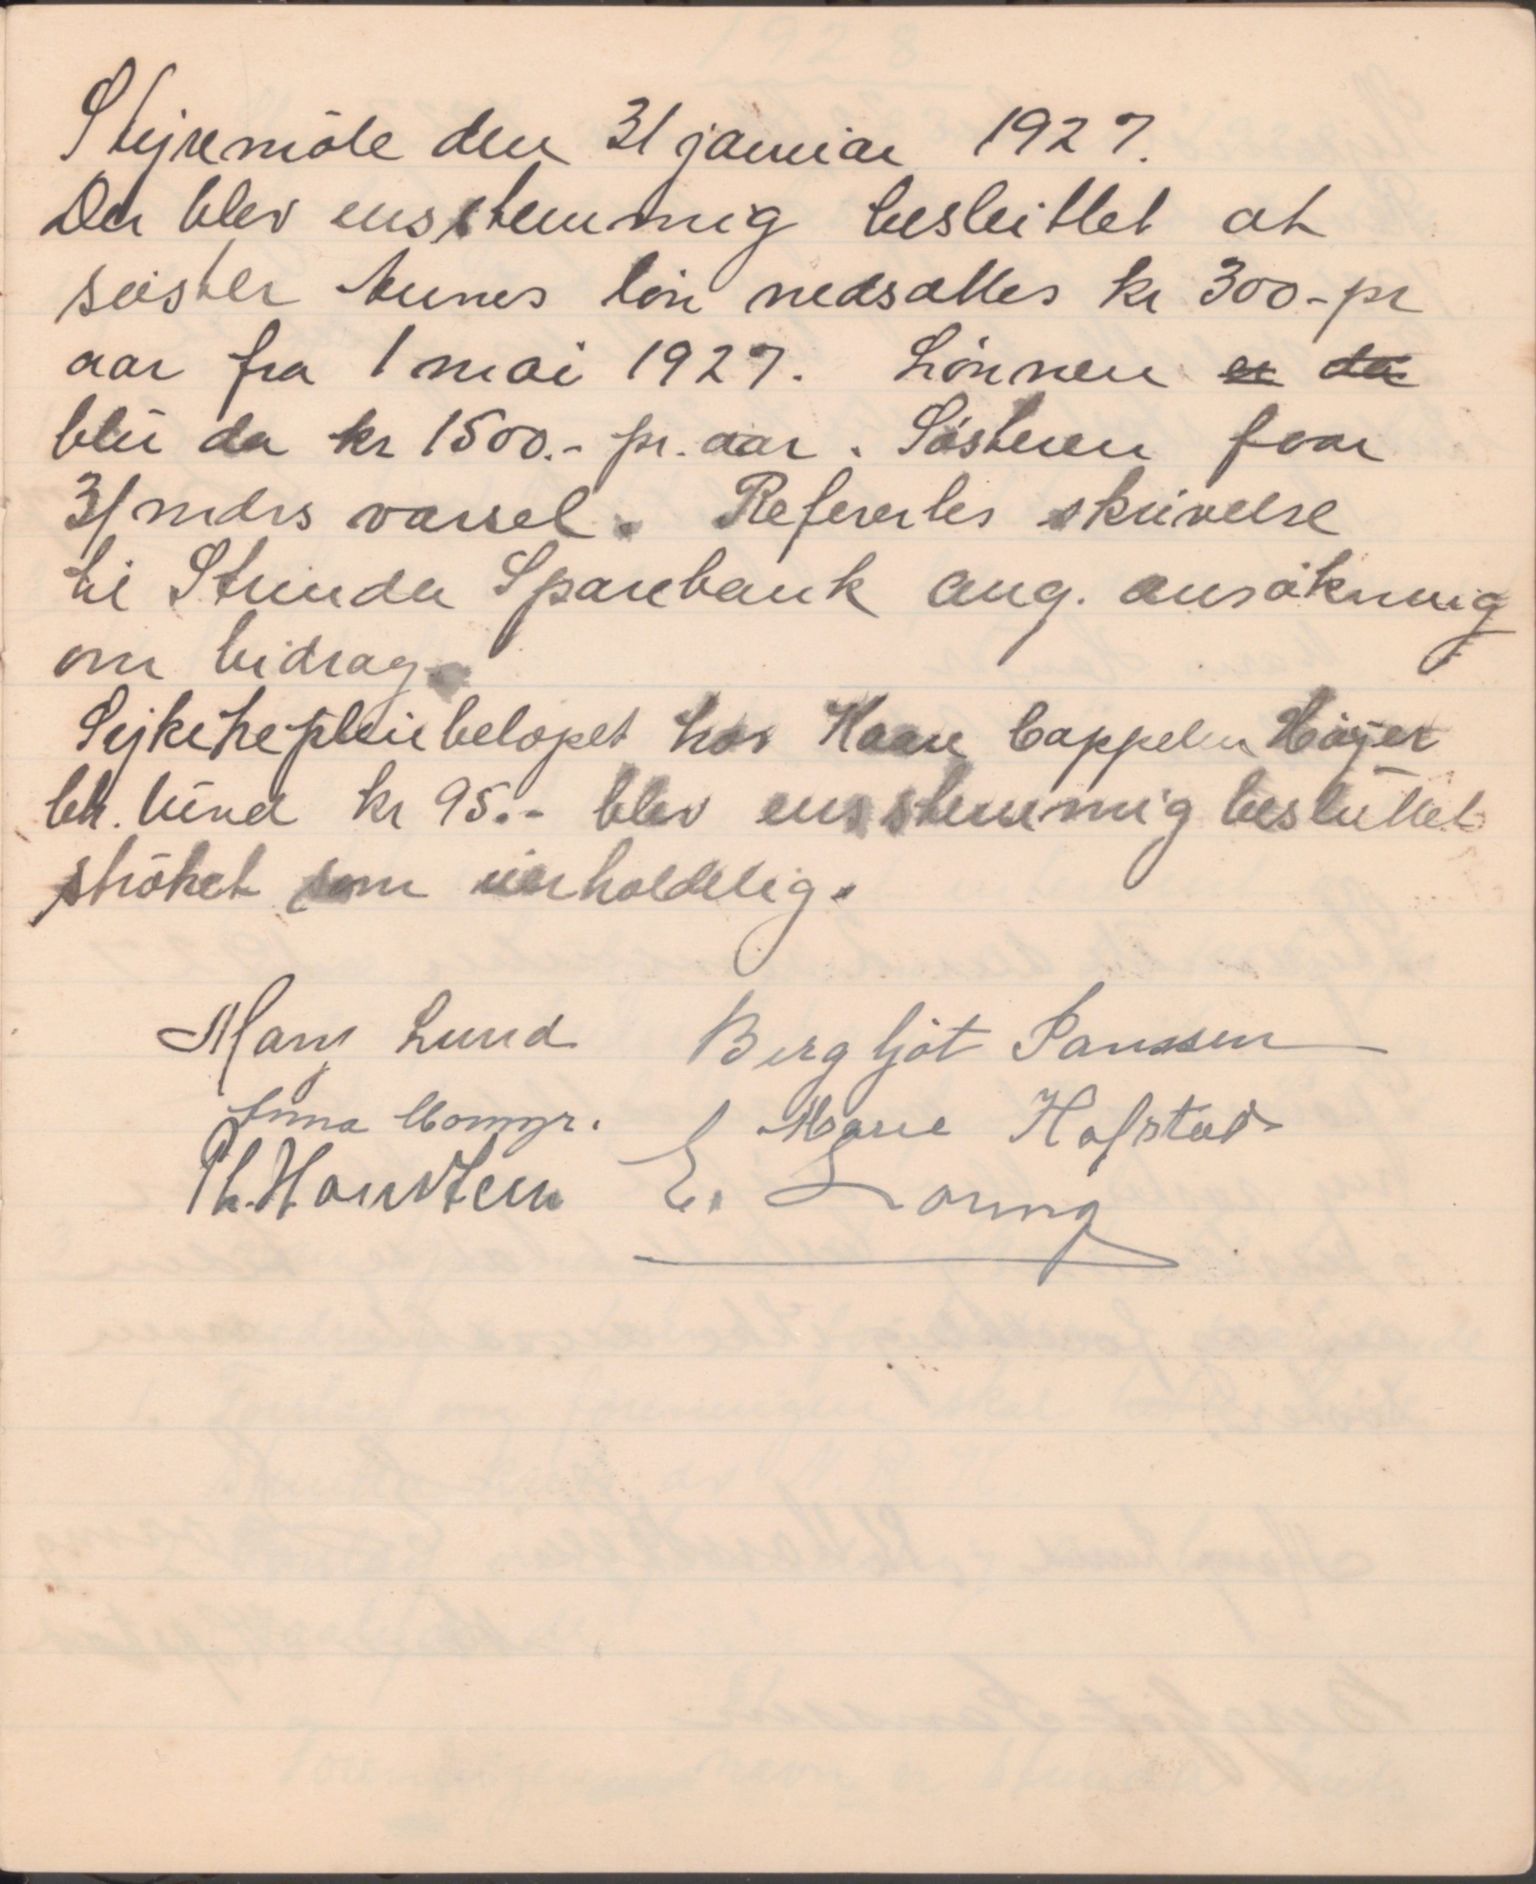 Styremöte den 31 januar 1927.
Der blev ensstemmig besluttet at
søster Aunes lön nedsattes kr 300.- pr
aar fra 1 mai 1927. Lönnen er da
blir da kr 1500.- pr. aar. Søsteren faar
3/ mdrs varsel. Refererles skrivelse
til Strinda Sparebank ang. ansökning
om bidrag.
Sykepleiebelopet hos Kaare Cappelen Höyer
kr 95.- blev ensstemmig besluttet
ströket som uerholdelig.
Mary Lund Bergljot Janssen
Anna Marie Hofstad
Th. Havstein E. Loeng